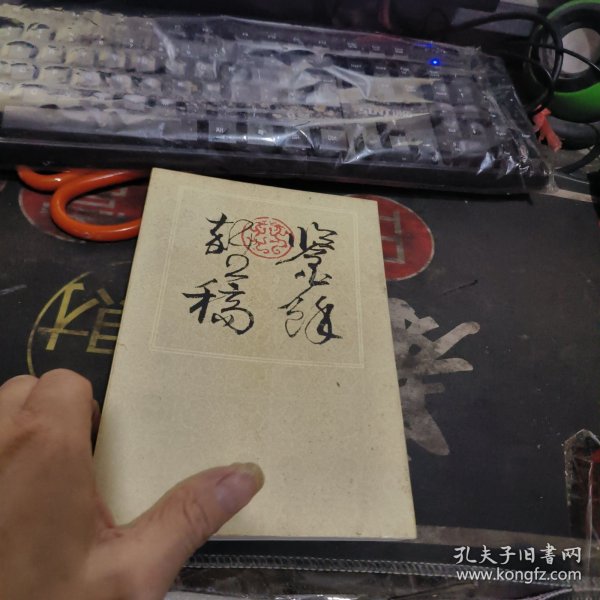 鑒餘
雜稿
孔夫子旧書网
www.kongfz.com